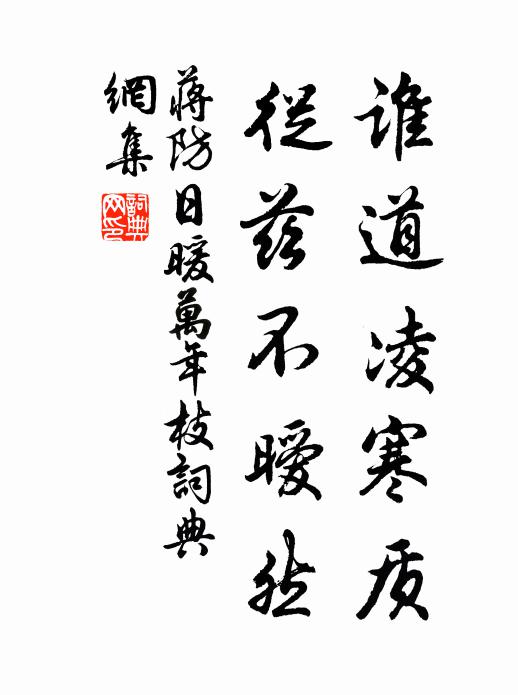 谁道凌寒质
從茲不曖然
蔣防日暖萬年枝詞典
網集
詞典
网印